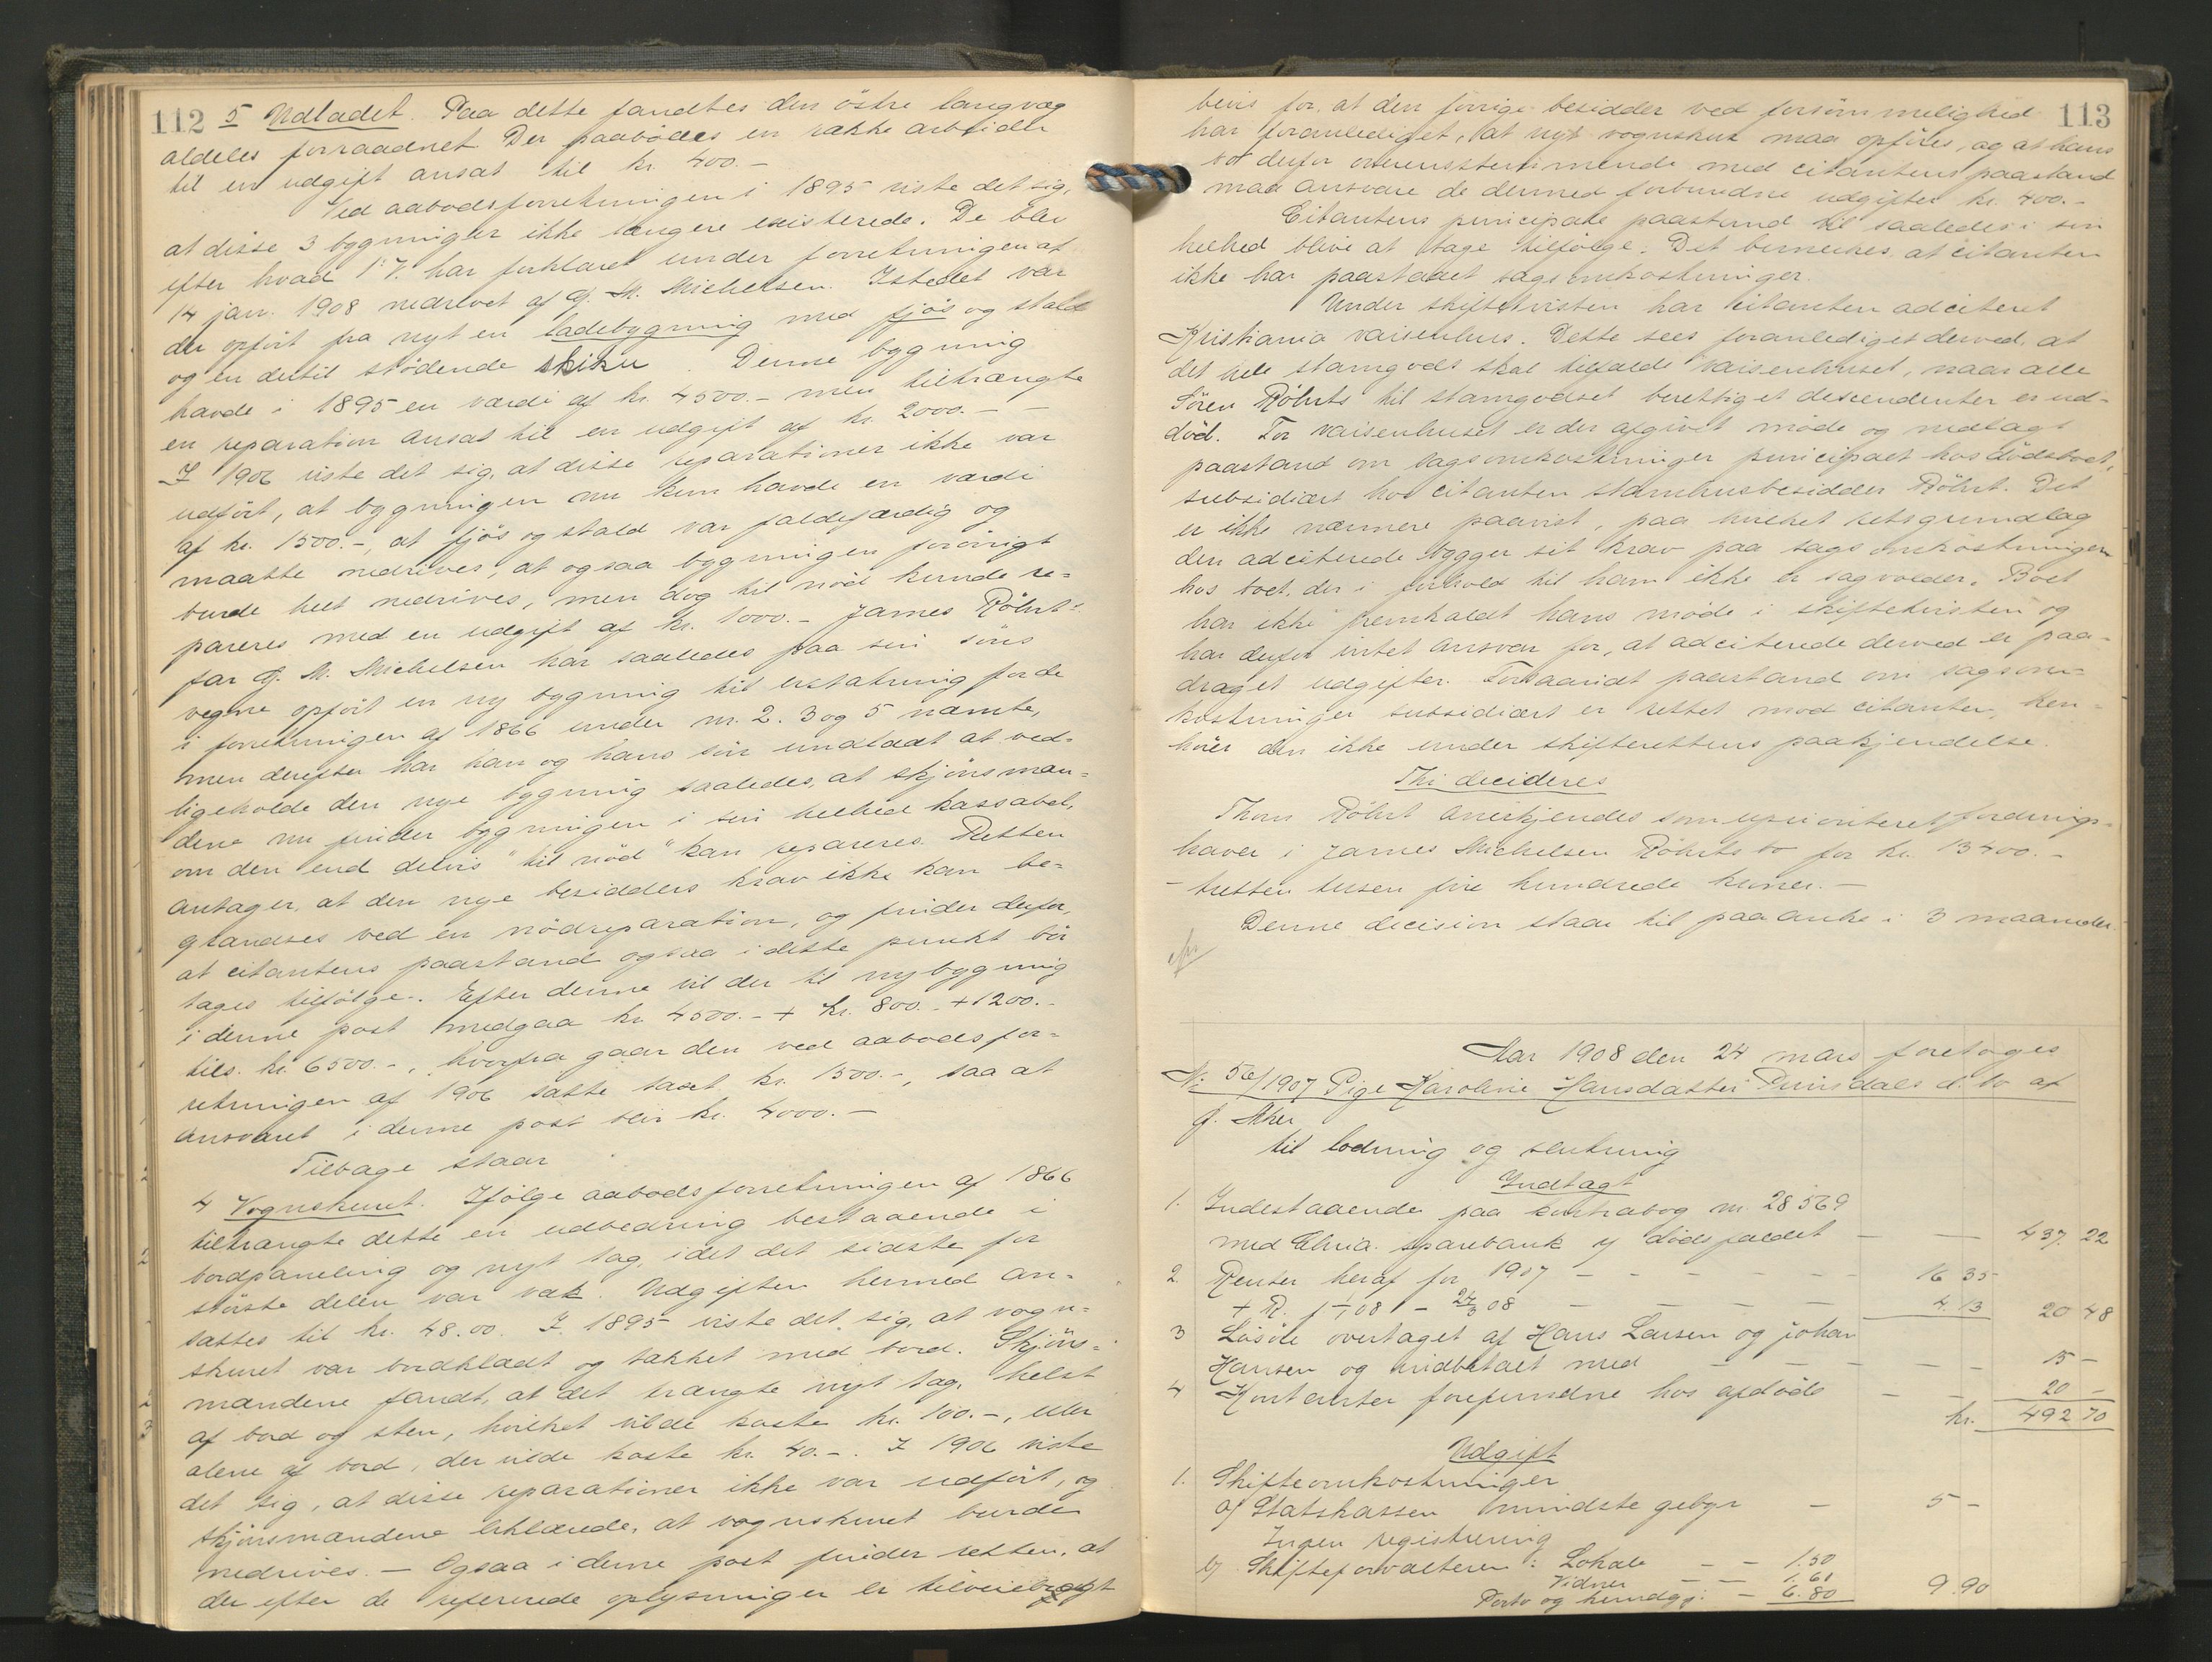 112 5 Udladet. Paa dette fandtes den östre langvæg
aldeles forraadnet Der paabödes en række arbeider
til en udgift ansat til kr. 400.-
Ved aabodsforretningen i 1895 viste det sig,
at disse 3 bygninger ikke længere existerede. De blev
efter hvad 1. V. har forklaret under forretningen af
14 jan. 1908 nedrevet af G. M. Michelsen. Istedet var
der opfört fra nyt en ladebygning med fjös og stald
og en dertil stödende skikur. Denne bygning
havde i 1895 en værdi af kr. 4500.- men tiltrængte
en reparation ansat til en udgift af kr. 2000.- -
I 1906 viste det sig, at disse reparationer ikke var
udfört, at bygningen nu kun havde en værdi
af kr. 1500.-, at fjös og stald var faldefærdig og
maatte nedrives, at ogsaa bygningen forövrigt
burde helt nedrives, men dog til nöd kunde re-
pareres med en udgift af kr. 1000.- James Röhrts
far G. M. Michelsen har saaledes paa sin söns
vegne opfört en ny bygning til erstatning for de
i forretningen af 1866 under nr. 2. 3 og 5 nævnte,
men derefter har han og hans sön undladt at ved-
ligeholde den nye bygning saaledes, at skjönsmæn-
dene nu finder bygningen i sin helhed kassabel,
om den end delvis "til nöd" kan repareres. Retten
antager, at den nye besidders krav ikke kan be-
grændses ved en nödreparation, og finder derfor,
at citantens paastand ogsaa i dette punkt bör
tages tilfölge. Efter denne vil der til nybygning
i denne post medgaa kr. 4500.- + kr. 800.- + 1200.-
tils. kr. 6500.-, hvorfra gaar den ved aabodsfor-
retningen af 1906 satte taxt kr. 1500.-, saa at
ansvaret i denne post blir kr. 4000.-
Tilbage staar
4 Vognskuret. Ifölge aabodsforretningen af 1866
tiltrængte dette en udbedring bestaaende i
bordpaneling og nyt tag, idet det sidste for
störste delen var væk. Udgiften hermed an-
sattes til kr. 48.00. I 1895 viste det sig, at vogn-
skuret var bordklædt og tækket med bord. Skjöns-
mændene fandt, at det trængte nyt tag, helst
af bord og sten, hvilket vilde koste kr. 100.-, eller
alene af bord, der vilde koste kr. 40.-. I 1906 viste
det sig, at disse reparationer ikke var udfört, og
skjönsmændene erklærede, at vognskuret burde
nedrives. - Ogsaa i denne post finder retten, at
der efter de refererede oplysninger er tilveiebragt
113
bevis for, at den forrige besidder ved forsömmelighed
har foranlediget, at nyt vognskur maa opföres, og at hans
bo derfor overensstemmende med citantens paastand
maa ansvare de dermed forbundne udgifter kr. 400.-
Citantens principale paastand vil saaledes i sin
helhed blive at tage tilfölge. Det bemerkes, at citanten
ikke har paastaaet sagsomkostninger.
Under skiftetvisten har citanten adciteret
Kristiania vaisenhus. Dette sees foranlediget derved, at
det hele stamgods skal tilfalde vaisenhuset, naar alle
Sören Röhrts til stamgodset berettiget descendenter er ud-
död. For vaisenhuset er der afgivet möde og nedlagt
paastand om sagsomkostninger principalt hos dödsboet,
subsidiært hos citanten stamhusbesidder Röhrt. Det
er ikke nærmere paavist, paa hvilket retsgrundlag
den adciterede bygger sit krav paa sagsomkostninger
hos boet, der i forhold til ham ikke er sagvolder. Boet
har ikke fremkaldt hans möde i skiftetvisten og
har derfor intet ansvar for, at adciterede derved er paa-
draget udgifter. Forsaavidt paastand om sagsom-
kostninger subsidiært er rettet mod citanten, hen-
hörer den ikke under skifterettens paakjendelse.
Thi decideres
Thom Röhrt anerkjendes som uprioriteret fordrings-
haver i James Michelsen Röhrts bo for kr. 13400.-
- tretten tusen fire hundrede kroner. -
Denne decision staar til paaanke i 3 maaneder.
Aar 1908 den 24 mars foretoges
No 56/1907 Pige Karoline Hansdatter d. bo af
Aker
til lodning og slutning
Indtægt
1. Indestaaende paa contrabog nr. 28569
med Chria. sparebank v/ dödsfaldet - - 437. 22
2. Renter heraf for 1907 - - - - - 16 35
+ R. f 1/1 08 - 24/3 08 - - - - 4. 13 20 48
3 Lösöre overtaget af Hans Larsen og Johan
Hansen og indbetalt med - - - - - 15 -
4 Kontanter forefundne hos afdöde - - 20 -
kr. 492 70
Udgift
1. Skifteomkostninger
a/ Statskassen mindste gebyr - 5 -
Ingen registrering
b/ Skifteforvalteren: Lokale - - 1.50
Vidner - - 1.60
Porto og kundgj: - 6.80 9.90